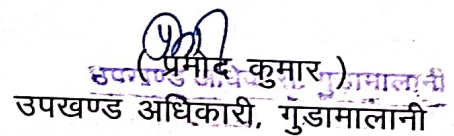 ( प्रमोद कुमार )
उपखण्ड अधिकारी, गुडामालानी
उपखण्ड अधिकारी, गुड़ामालानी